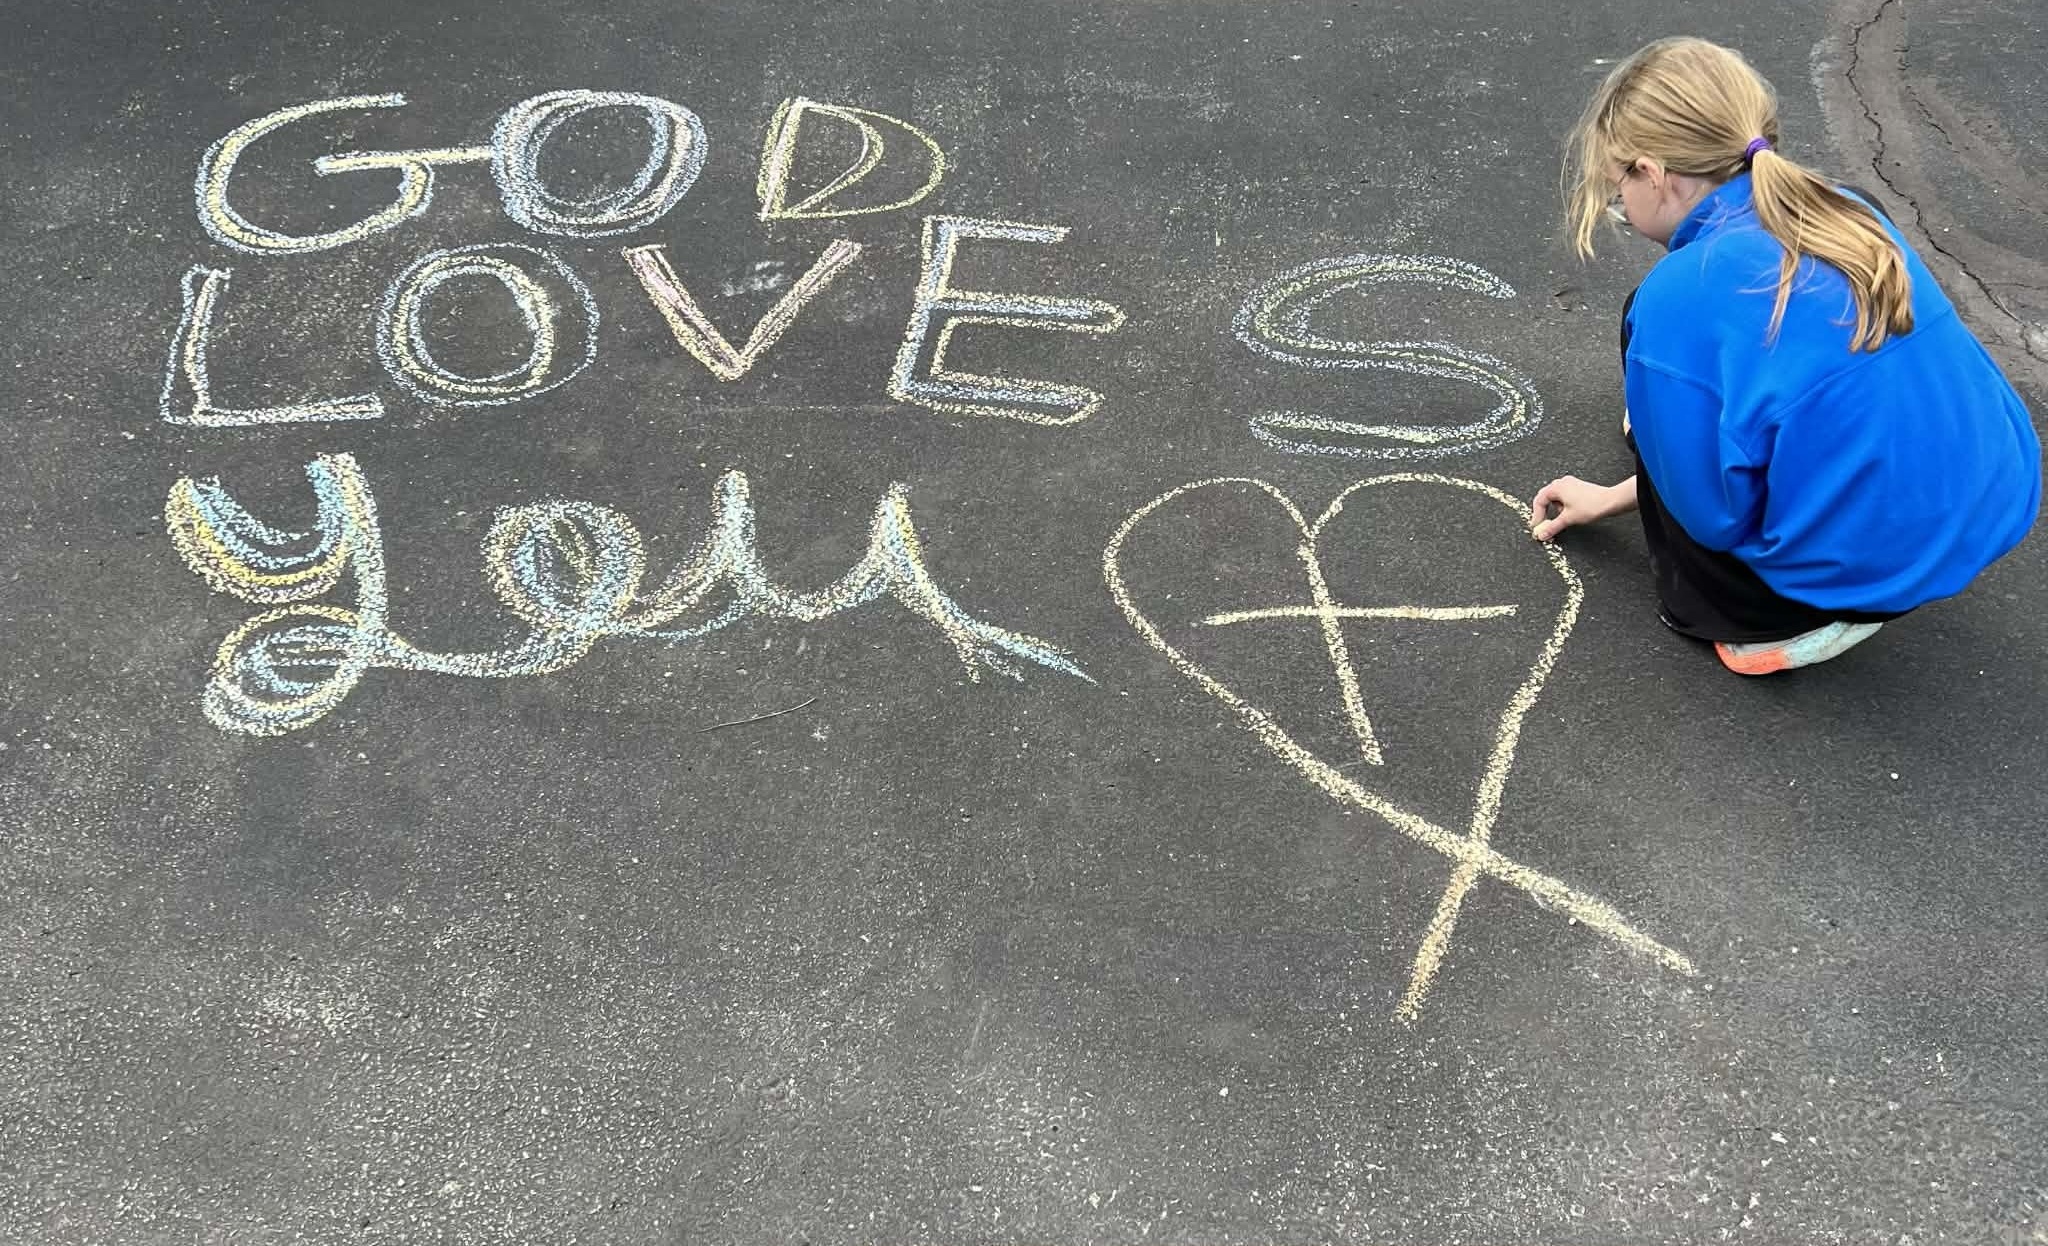 GOD
LOVES
you